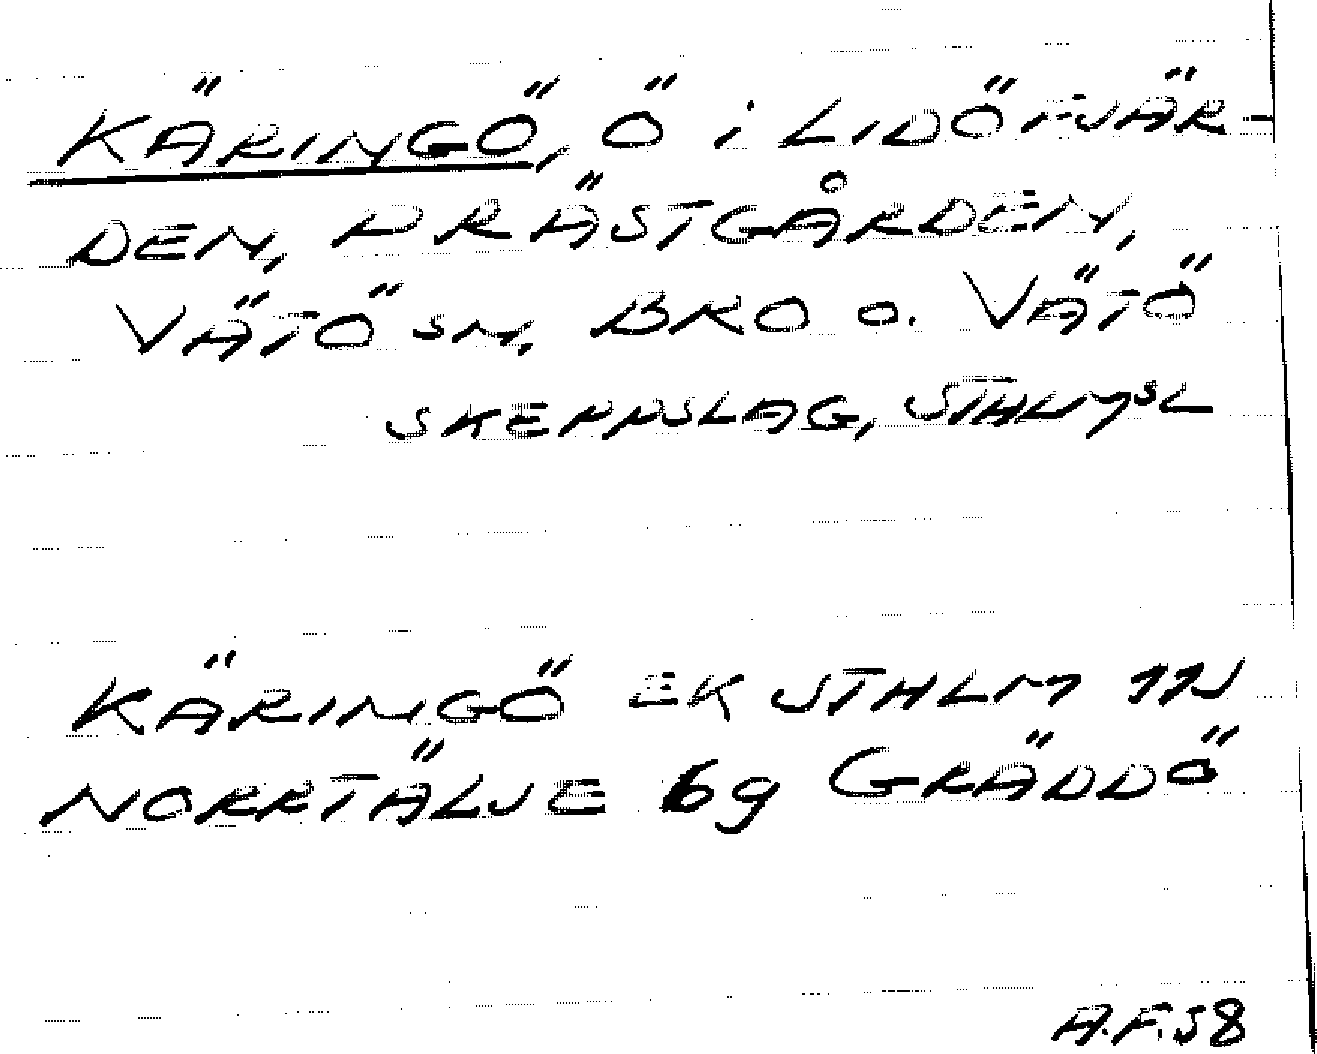 KÄRINGÖ, Ö i LIDÖFJÄR-
DEN, PRÄSTGÅRDEN,
VÄTÖ SN, BRO O. VÄTÖ
SKEPPSLAG, STHLMSL
KÄRINGÖ EK STHLM 11N
NORRTÄLJE 69 GRÄDDÖ
A.F.58